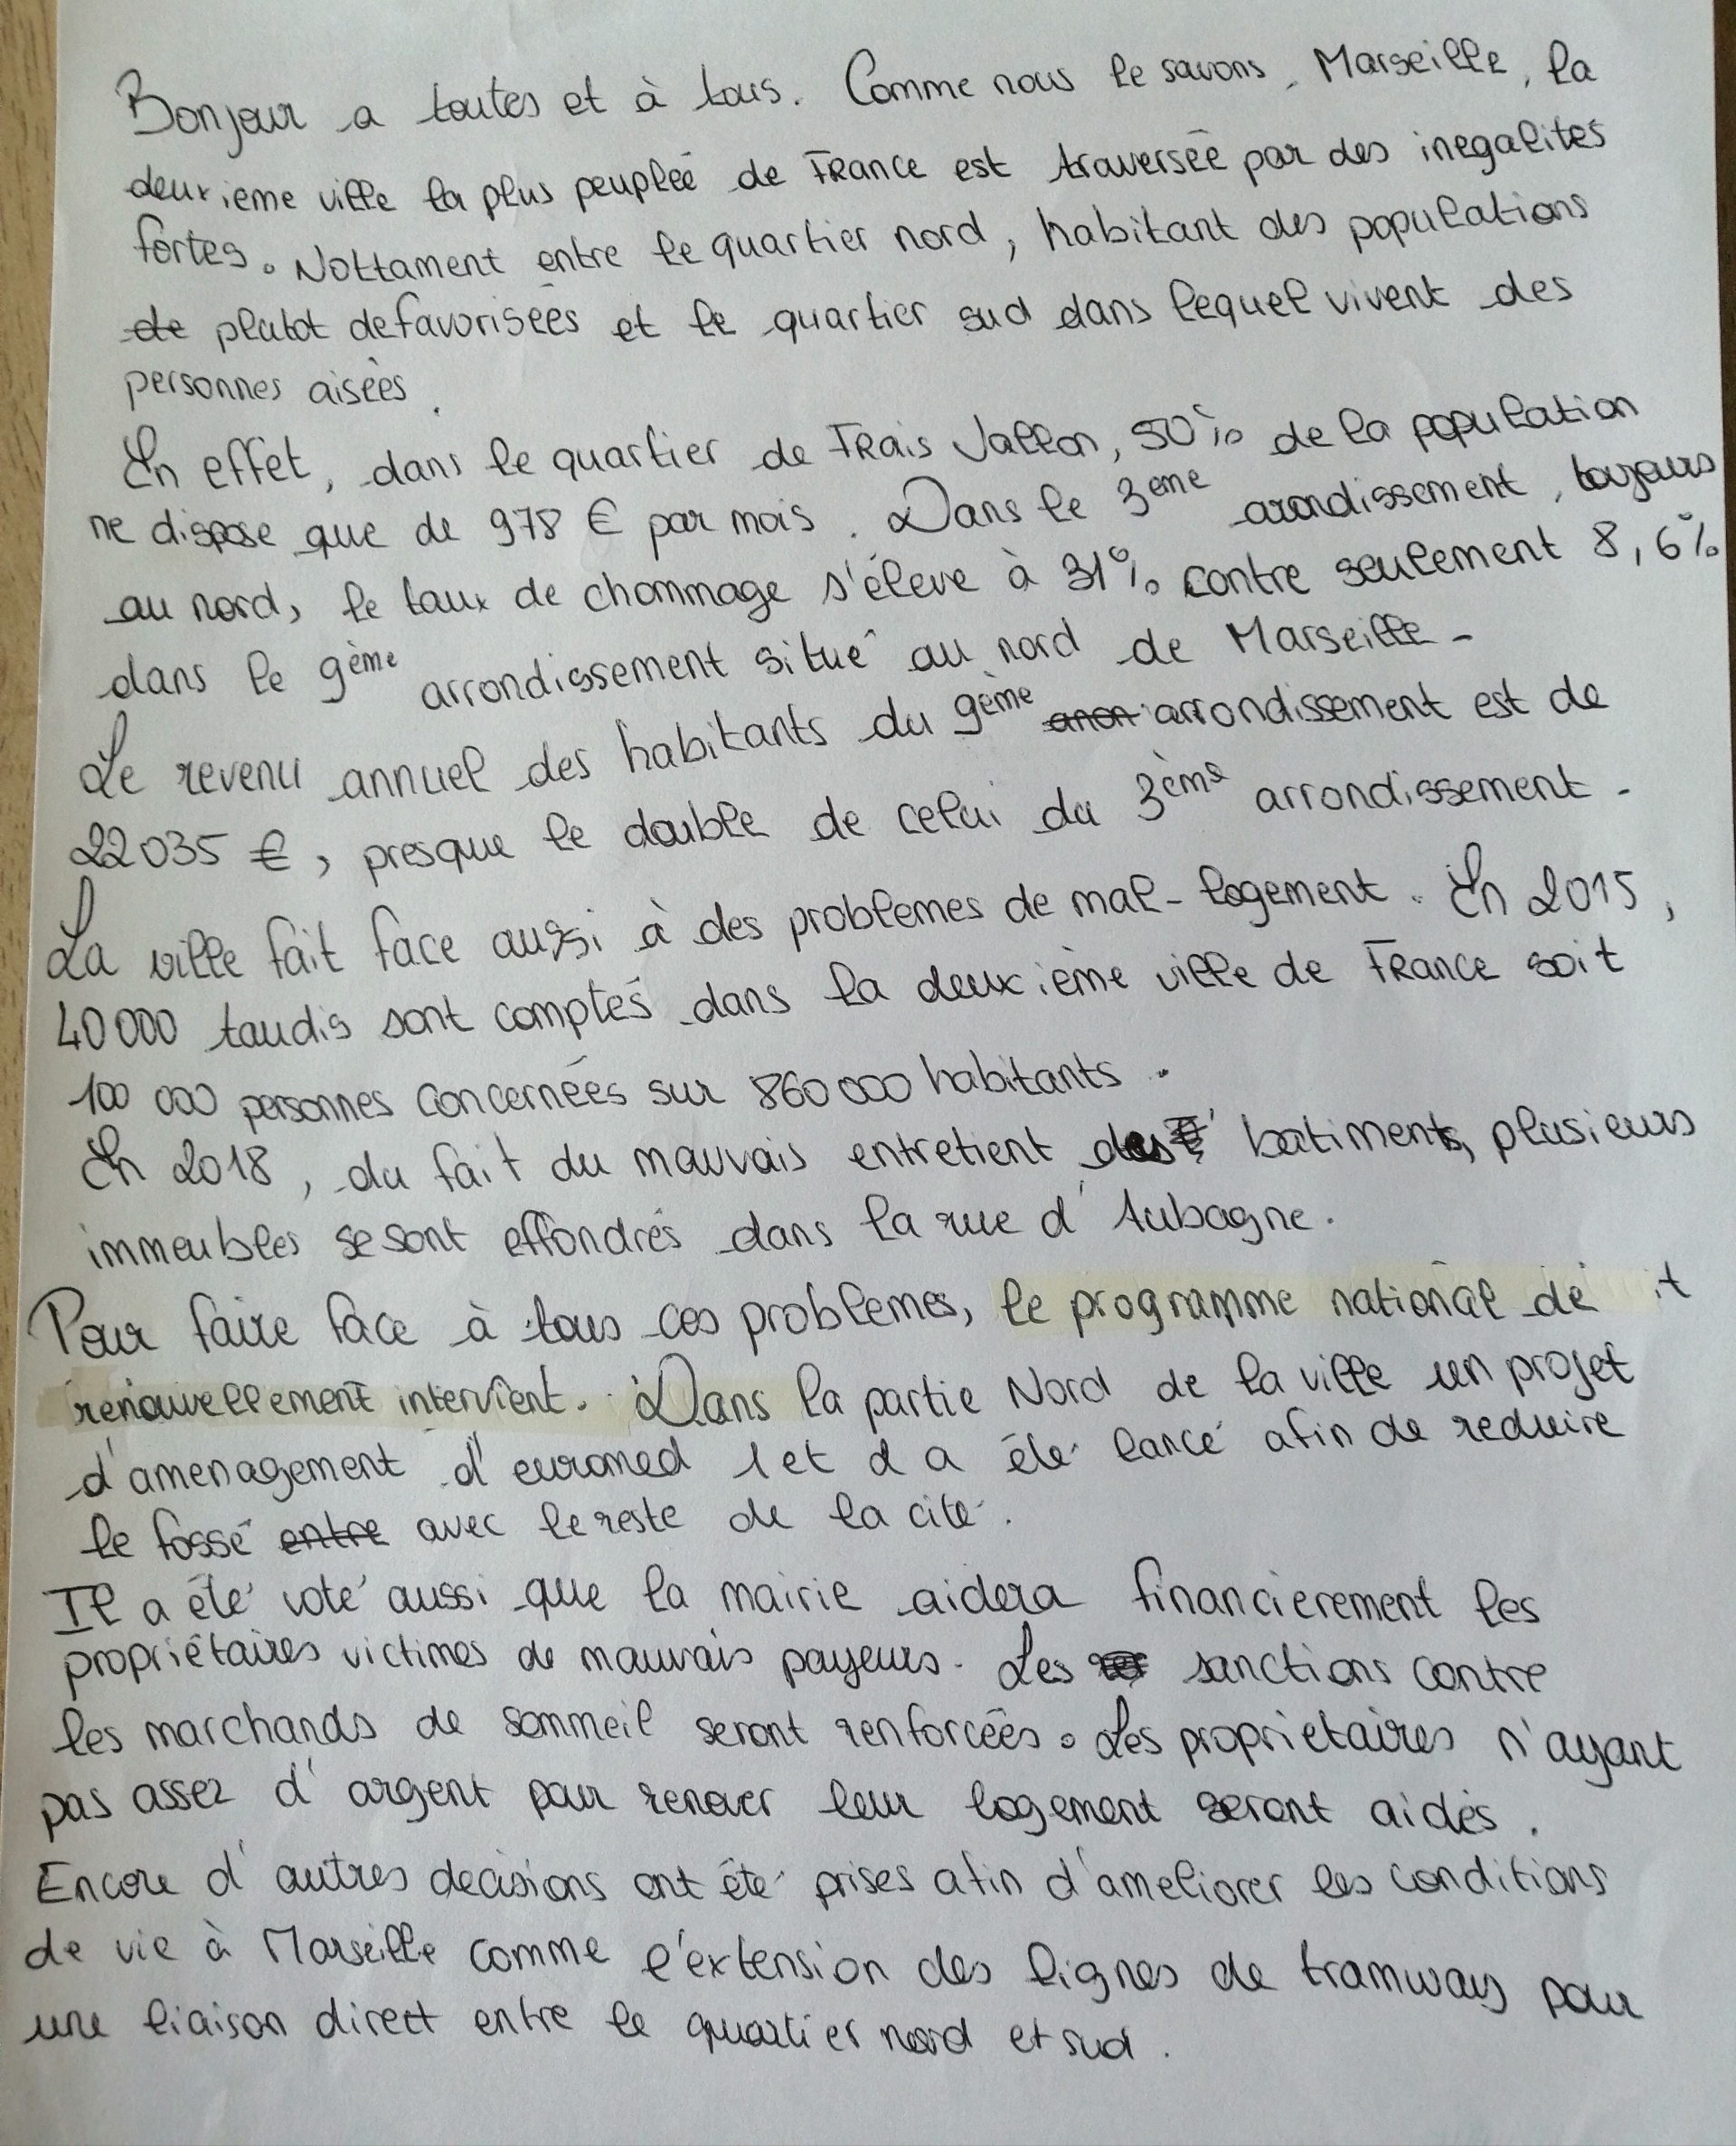 Bonjour a toutes et à tous. Comme nous le savons, Marseille, la
deuxieme ville la plus peuplée de France est traversée par des inegalités
fortes. Nottament entre le quartier nord, habitant des populations
de plutot defavorisées et le quartier sud dans lequel vivent des
personnes aisées.
En effet, dans le quartier de Frais Vallon, 50% de la population
ne dispose que de 978 € par mois. Dans le 3eme arondissement, toujours
au nord, le taux de chommage s'éleve à 31% contre seulement 8,6%
dans le 9ème arrondissement situé au nord de Marseille.
Le revenu annuel des habitants du 9ème anon arrondissement est de
22035 €, presque le double de celui du 3ème arrondissement.
La ville fait face aussi à des problemes de mal-logement. En 2015,
40000 taudis sont comptés dans la deuxième ville de France soit
100 000 personnes concernées sur 860000 habitants.
En 2018, du fait du mauvais entretient des batiments, plusieurs
immeubles se sont effondrés dans la rue d'Aubagne.
Pour faire face à tous ces problemes, le programme national de t
renouvellement intervient. Dans la partie Nord de la ville un projet
d'amenagement d'euromed 1 et 2 a été lancé afin de reduire
le fossé entre avec le reste de la cité.
Il a été voté aussi que la mairie aidera financierement les
propriétaires victimes de mauvais payeurs. Les sanctions contre
les marchands de sommeil seront renforcées. Les proprietaires n'ayant
pas assez d'argent pour renover leur logement seront aidés.
Encore d'autres decisions ont été prises afin d'ameliorer les conditions
de vie à Marseille comme l'extension des lignes de tramways pour
une liaison direct entre le quartier nord et sud.